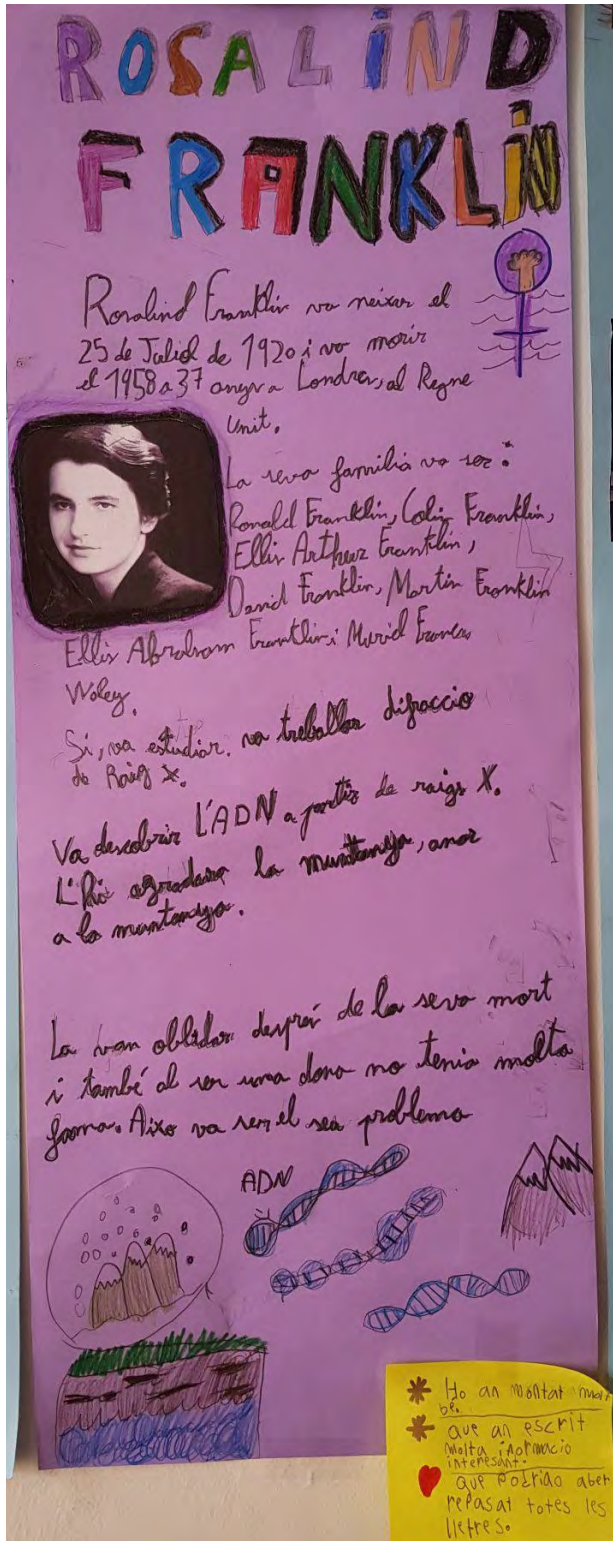 ROSALIND
FRANKLIN
Rosalind Franklin va neixer el
25 de Juliol de 1920 i va morir
el 1958 a 37 anys a Londres, al Regne
Unit.
La seva familia va ser:
Ronald Franklin, Colin Franklin,
Ellis Arthur Franklin,
David Franklin, Martin Franklin
Ellis Abraham Franklin i Muriel Frances
Waley.
Si, va estudiar. va treballar difraccio
de Raig X.
Va descobrir L'ADN a partir de raigs X.
L'hi agradava la muntanya, anar
a la muntanya.
La van oblidar després de la seva mort
i també al ser una dona no tenia molta
fama. Aixo va ser el seu problema
ADN
Ho an montat molt
be.
que an escrit
molta informacio
interesant.
que podriao aber
repasat totes les
lletres.